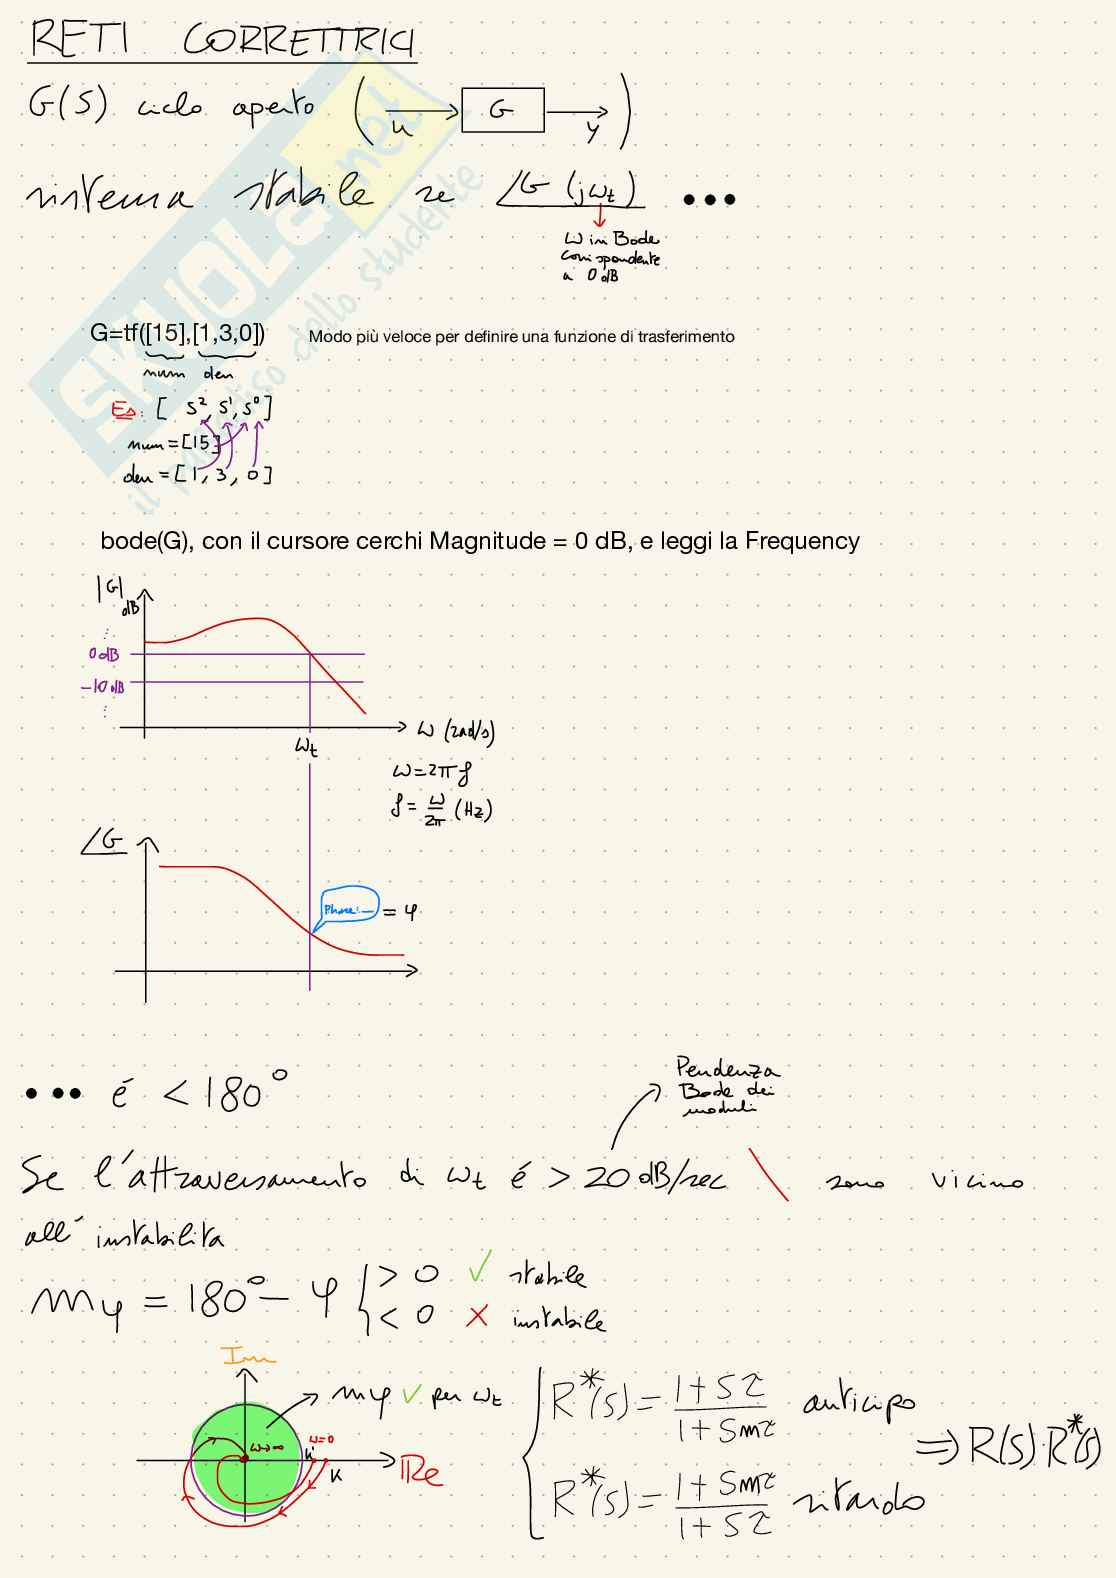 RETI CORRETTRICI
G(S) ciclo aperto ( u G y )
sistema stabile se ∠G (jωt) •••
ω in Bode
corrispondente
a 0 dB
SKUOLA.net
il paradiso dello studente
G=tf([15],[1,3,0]) Modo più veloce per definire una funzione di trasferimento
num den
Es: [ S², S¹, S⁰]
num = [15]
den = [1, 3, 0]
bode(G), con il cursore cerchi Magnitude = 0 dB, e leggi la Frequency
|G| dB
0 dB
-10 dB
ω (rad/s)
ωt
ω = 2πf
f = ω/2π (Hz)
∠G
Phase: — = φ
Pendenza
Bode dei
moduli
••• é < 180°
Se l'attraversamento di ωt é > 20 dB/sec \ sono vicino
all' instabilita
mφ = 180° - φ { > 0 ✓ stabile
< 0 ✗ instabile
Im
mφ ✓ per ωt
ω→∞ ω=0
K' K
Re
R*(s) = (1 + Sτ)/(1 + Smτ) anticipo
=> R(s) R*(s)
R*(s) = (1 + Smτ)/(1 + Sτ) ritardo